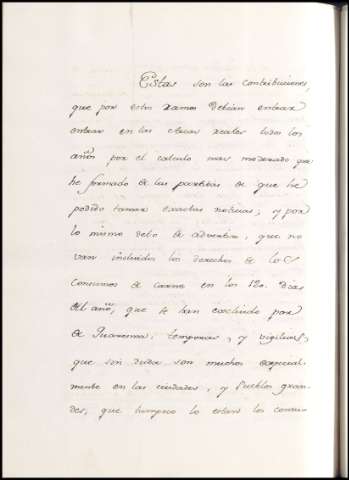 Estas son las contribuciones,
que por estos ramos debian entrar
entrar en las Arcas reales todos los
años por el calculo mas moderado que
he formado de las partidas de que he
podido tomar exactas noticias, y por
lo mismo debo de advertir, que no
van incluidos los derechos de los
consumos de carne en los 120. dias
del año, que se han excluido por
de Quaresma, temporas, y vigilias,
que sin duda son muchos especial-
mente en las ciudades, y Pueblos gran-
des, que tampoco lo estan los consu-